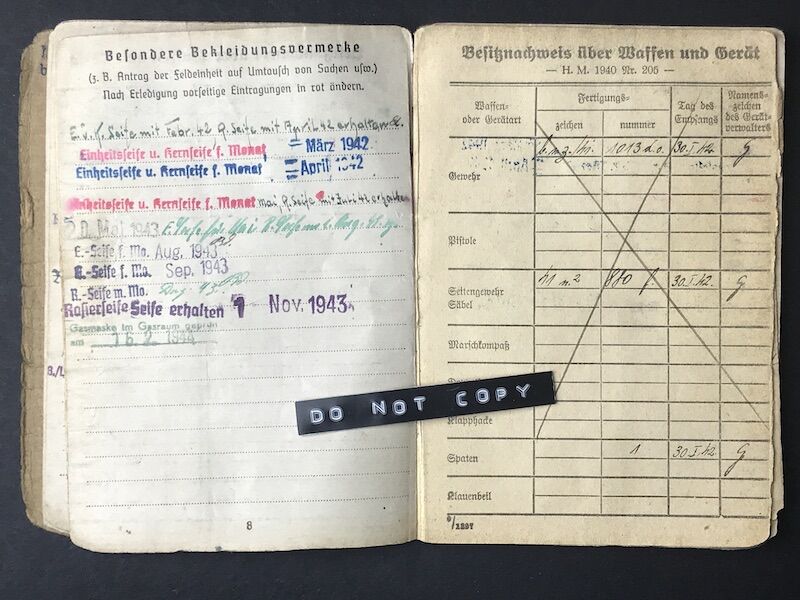 Besondere Bekleidungsvermerke
(z. B. Antrag der Feldeinheit auf Umtausch von Sachen usw.)
Nach Erledigung vorseitige Eintragungen in rot ändern.
Seife mit Febr. 42 Seife mit April 42 erhalten
Einheitsseife u. Kernseife f. Monat = März 1942
Einheitsseife u. Kernseife f. Monat = April 1942
Einheitsseife u. Kernseife f. Monat Mai Seife mit Juli 42 erhalten
Mai 1943
E.-Seife f. Mo. Aug. 1943
E.-Seife f. Mo. Sep. 1943
R.-Seife m. Mo. Aug. 43
Rasierseife Seife erhalten 1 Nov. 1943
Gasmaske im Gasraum geprüft
am 16. 2. 1944
8
DO NOT COPY
Besitznachweis über Waffen und Gerät
— H. M. 1940 Nr. 205 —
Waffen- oder Gerätart
Fertigungs-
zeichen
nummer
Tag des Empfangs
Namens- zeichen des Gerät- verwalters
Gewehr 1013 30.I.42 G
Pistole
Seitengewehr Säbel 880 f. 30.I.42. G
Marschkompaß
Klapphacke
Spaten 1 30.I.42 G
Klauenbeil